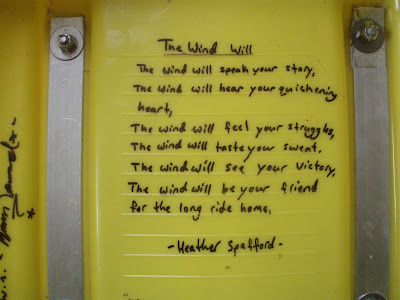 The Wind Will
The wind will speak your story,
The wind will hear your quickening
heart,
The wind will feel your struggles,
The wind will taste your sweat.
The wind will see your victory,
The wind will be your friend
for the long ride home.
-Heather Spafford-